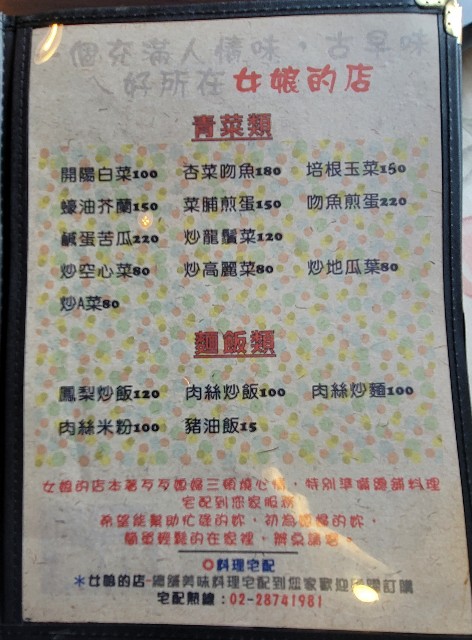 一個充滿人情味，古早味
好所在 女娘的店
青菜類
開陽白菜100 杏菜吻魚180 培根玉菜150
蠔油芥蘭150 菜脯煎蛋150 吻魚煎蛋220
鹹蛋苦瓜220 炒龍鬚菜120
炒空心菜80 炒高麗菜80 炒地瓜葉80
炒A菜80
麵飯類
鳳梨炒飯120 肉絲炒飯100 肉絲炒麵100
肉絲米粉100 豬油飯15
女娘的店本著歹歹媳婦三頓燒心情，特別準備週舖料理
宅配到您家服務
希望能幫助忙碌的妳，初為媳婦的妳，
簡單輕鬆的在家裡，辦桌請客。
◎料理宅配
＊女娘的店-總舖美味料理宅配到您家歡迎訂購
宅配熱線：02-28741981